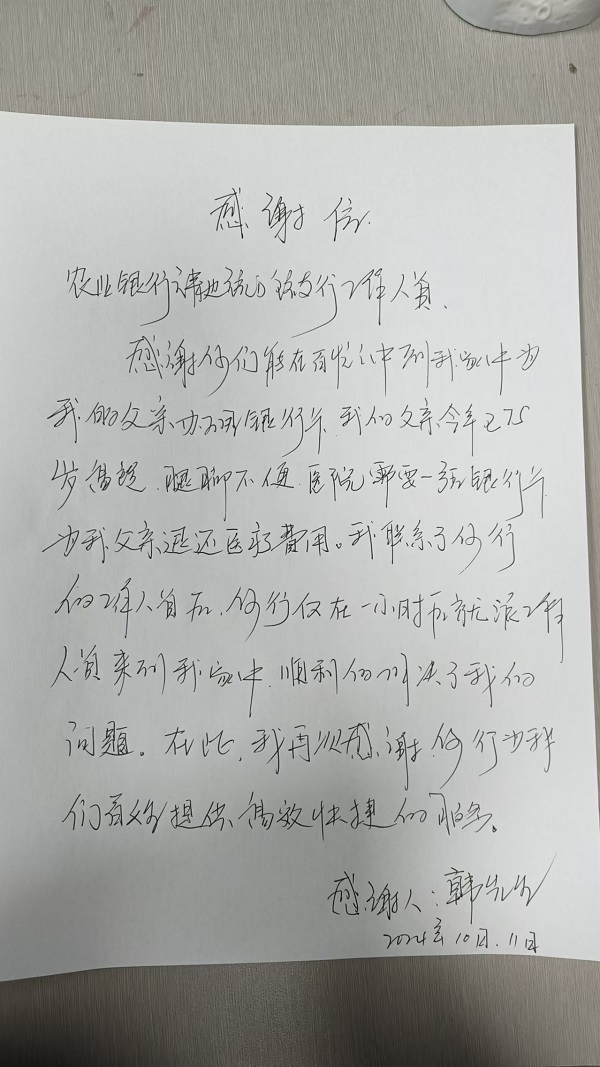 感谢信
农业银行靖边统万路支行工作人员、
感谢你们能在百忙之中到我家中为
我的父亲办理银行卡，我的父亲今年已75
岁高龄，腿脚不便，医院需要一张银行卡
为我父亲退还医疗费用。我联系了你行
的工作人员后，你行仅在一小时后就派工作
人员来到我家中，顺利的解决了我的
问题。在此，我再次感谢你行为我
们百姓提供高效快捷的服务。
感谢人：韩先生
2024年10月11日